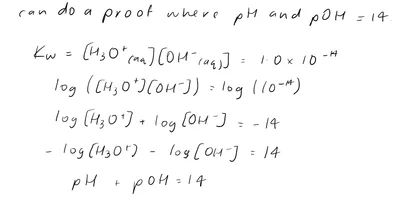 can do a proof where pH and pOH = 14
Kw = [H₃O⁺(aq)][OH⁻(aq)] = 1.0 × 10⁻¹⁴
log ([H₃O⁺][OH⁻]) = log (10⁻¹⁴)
log [H₃O⁺] + log [OH⁻] = -14
- log [H₃O⁺] - log [OH⁻] = 14
pH + pOH = 14